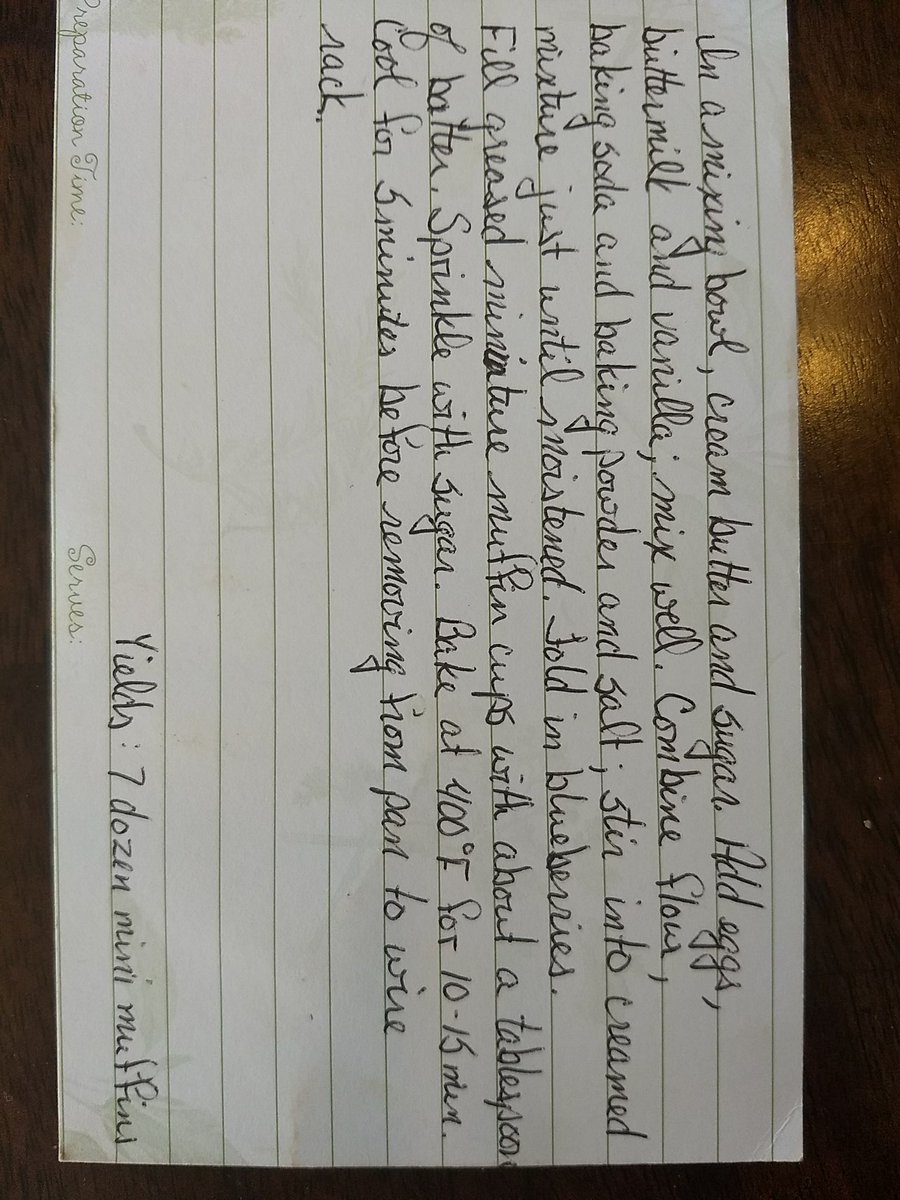 In a mixing bowl, cream butter and sugar. Add eggs,
buttermilk and vanilla; mix well. Combine flour,
baking soda and baking powder and salt; stir into creamed
mixture just until moistened. Fold in blueberries.
Fill greased miniature muffin cups with about a tablespoon
of batter. Sprinkle with sugar. Bake at 400°F for 10-15 min.
Cool for 5 minutes before removing from pan to wire
rack.
Yields: 7 dozen mini muffins
Preparation Time: Serves: